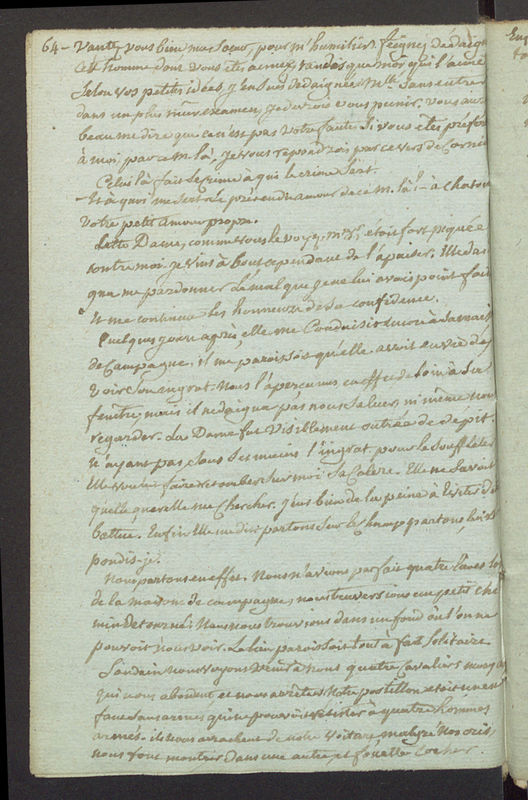 64 - vantez vous bien ma sœur, pour m'humilier. feignez de dédaigner
cet homme dont vous etes aimée, tandis que moi qui l'aime
selon vos petites idées, j'en suis dedaignée. Mlle. Sans entrer
dans un plus mûr examen, je devrois vous punir. vous avez
beau me dire que ce n'est pas votre faute si vous etes préferée
à moi par ce m. là, je vous repondrois par ce vers de Corneille
Celui là fait le crime à qui le crime sert.
- Et à quoi me sert le prétendu amour de ce m. là? - à chatouiller
votre petit amour propre.
Cette Dame, comme vous le voyez, mrs, etoit fort piquée
contre moi. je vins à bout cependant de l'apaiser. Elle daigna
me pardonner le mal que je ne lui avois point fait
et me continua les honneurs de sa confidence.
Quelques jours après, elle me conduisit encore à sa maison
de Campagne. il me paroissoit qu'elle avoit envie d'y
voir son ingrat. Nous l'aperçumes en effet de loin à sa
fenêtre; mais il ne daigna pas nous saluer, ni même nous
regarder. La Dame fut visiblement outrée de dépit.
N'ayant pas sous ses mains l'ingrat pour le souffleter
Elle voulut faire retomber sur moi sa colere. Elle ne savoit
quelle querelle me chercher. J'eus bien de la peine à éviter d'être
battue. Enfin elle me dit partons sur le champ. partons, lui ré-
pondis-je.
Nous partons en effet. Nous n'avions pas fait quatre lieues loin
de la maison de campagne, nous traversions un petit che
min detourné. Nous nous trouvions dans un fond où l'on ne
pouvoit nous voir. Le lieu paroissoit tout à fait solitaire.
Soudain nous voyons venir à nous quatre cavaliers masqués
qui nous abordent et nous arrêtent. Notre postillon etoit un en
fant sans armes qui ne pouvoit résister à quatre hommes
armés. ils nous arrachent de notre voiture malgré nos cris,
nous font monter dans une autre et fouette cocher.